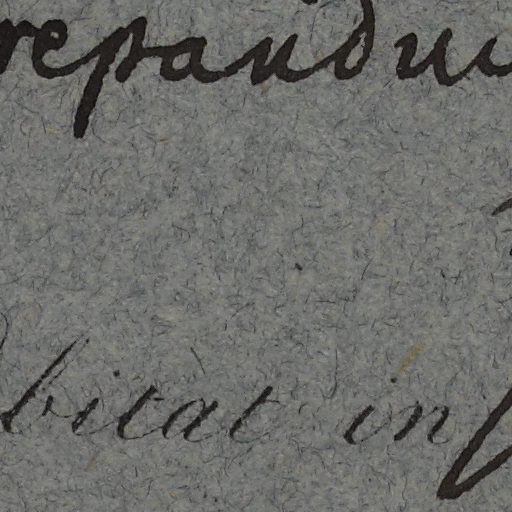 repandu
bitat in